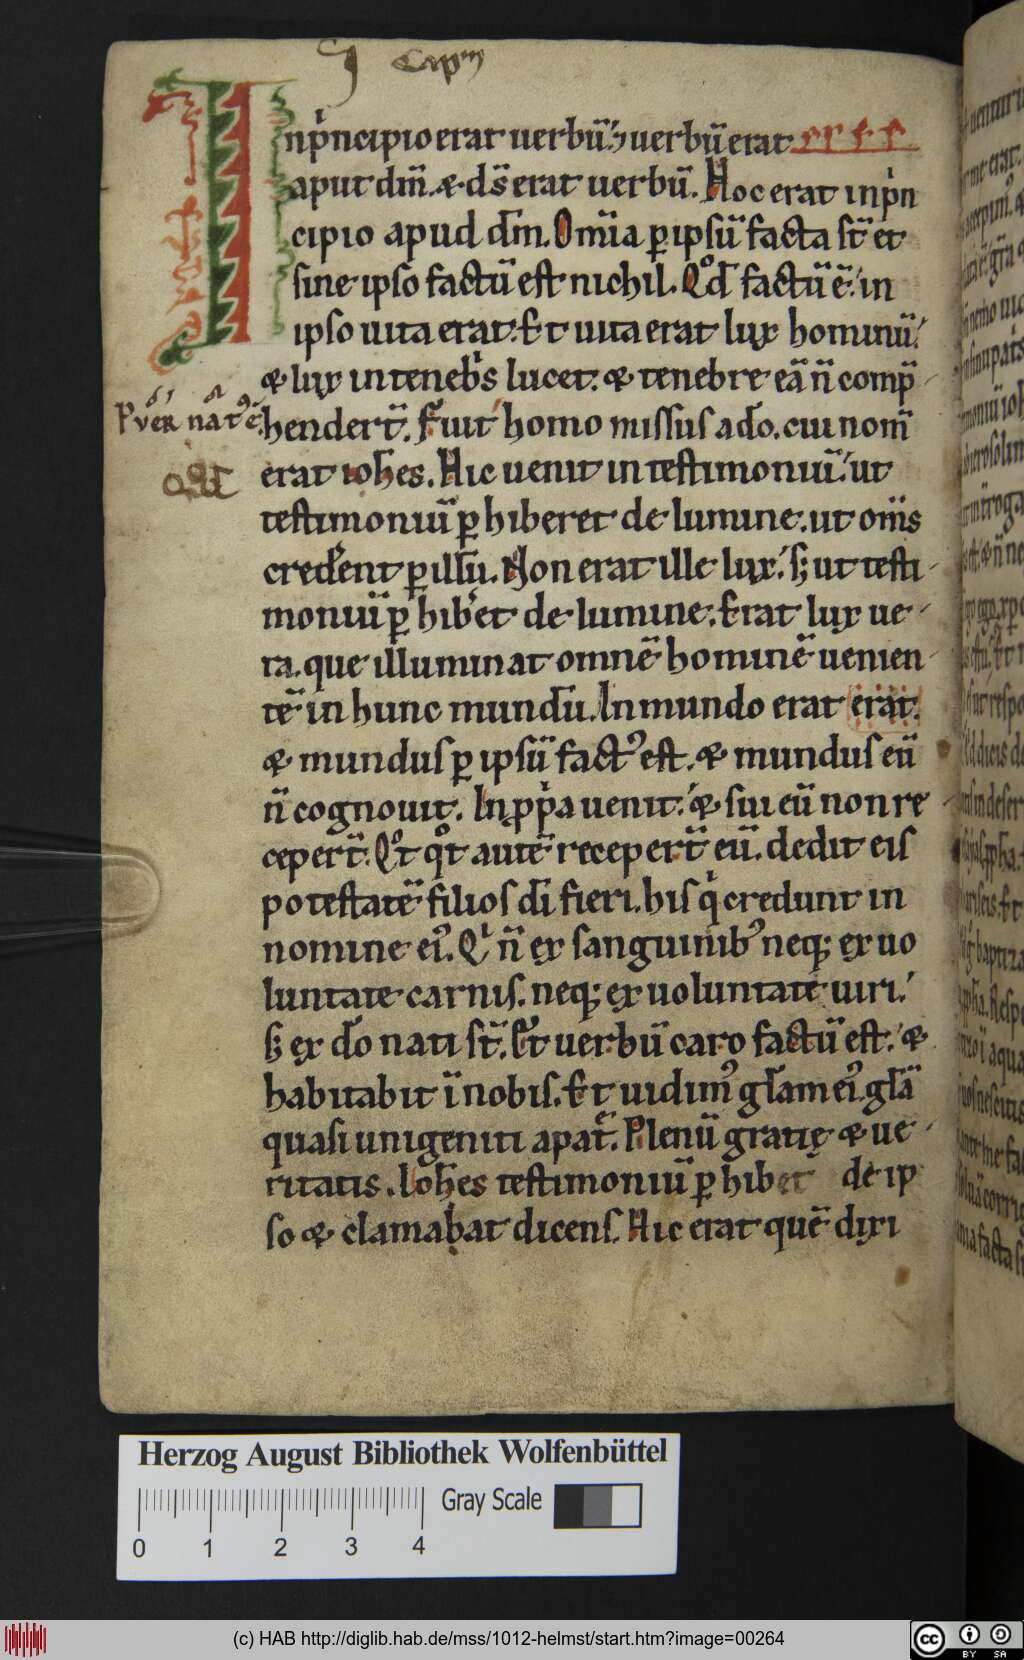 I Cap̄m
In pͥncipio erat uerbū. ⁊ uerbū erat
aput dm̄. & ds̄ erat uerbū. Hoc erat in pͥn
cipio apud dm̄. Om̄ia ꝑ ipsū facta st̄ et
sine ipso factū est nichil. Qͦd factū ē. in
ipso uita erat. Et uita erat lux hominū.
& lux in tenebͥs lucet. & tenebre eā n̄ comp̄
Pver nat' ē
hendert̄. Fuit homo missus a do. cui nom̄
erat ioh̄es. Hic uenit in testimoniū. ut
testimoniū ꝑhiberet de lumine. ut om̄s
creder̄ent ꝑ illū. Non erat ille lux. s; ut testi
moniū ꝑhib̄et de lumine. Erat lux ue
ra. que illuminat omnē hominē uenien
tē in hunc mundū. In mundo erat erat.
& mundus ꝑ ipsū fact᾽ est. & mundus eū
n̄ cognouit. In ꝓpͥa uenit. & sui eū non re
cepert̄. Qͦt qͦt autē recepert̄ eū. dedit eis
potestatē filios dī fieri. his qͥ credunt in
nomine ei᾽. Qͥ n̄ ex sanguinib᾽ neq; ex uo
luntate carnis. neq; ex uoluntate uiri.
s; ex do nati st̄. Et uerbū caro factū est. &
habitabit ī nobis. Et uidim᾽ glam̄ ei᾽. glā
quasi unigeniti a pat̄. Plenū gratię & ue
ritatis. Ioh̄es testimoniū ꝑhibet de ip
so & clamabat dicens. Hic erat quē dixi
Herzog August Bibliothek Wolfenbüttel
Gray Scale
0 1 2 3 4
(c) HAB http://diglib.hab.de/mss/1012-helmst/start.htm?image=00264
cc BY SA